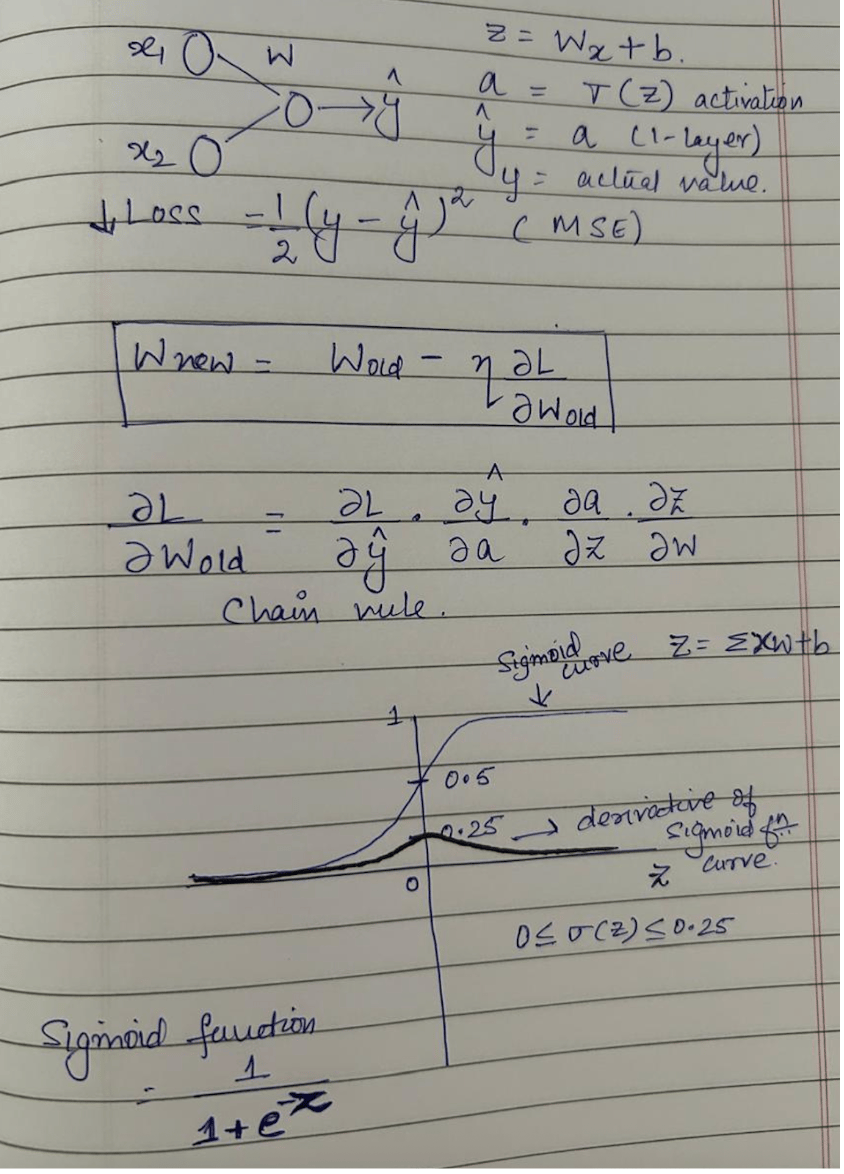 x₁ W z = Wx + b.
a = σ(z) activation
ŷ
ŷ = a (1-layer)
x₂
y = actual value.
↓ Loss = 1/2 (y - ŷ)² (MSE)
Wnew = Wold - η ∂L/∂Wold
∂L/∂Wold = ∂L/∂ŷ . ∂ŷ/∂a . ∂a/∂z . ∂z/∂w
Chain rule.
Sigmoid curve z = Σxw+b
1
0.5
0.25 → derivative of
sigmoid fn
curve.
z
0
0 ≤ σ(z) ≤ 0.25
Sigmoid function
= 1/(1+e^-z)